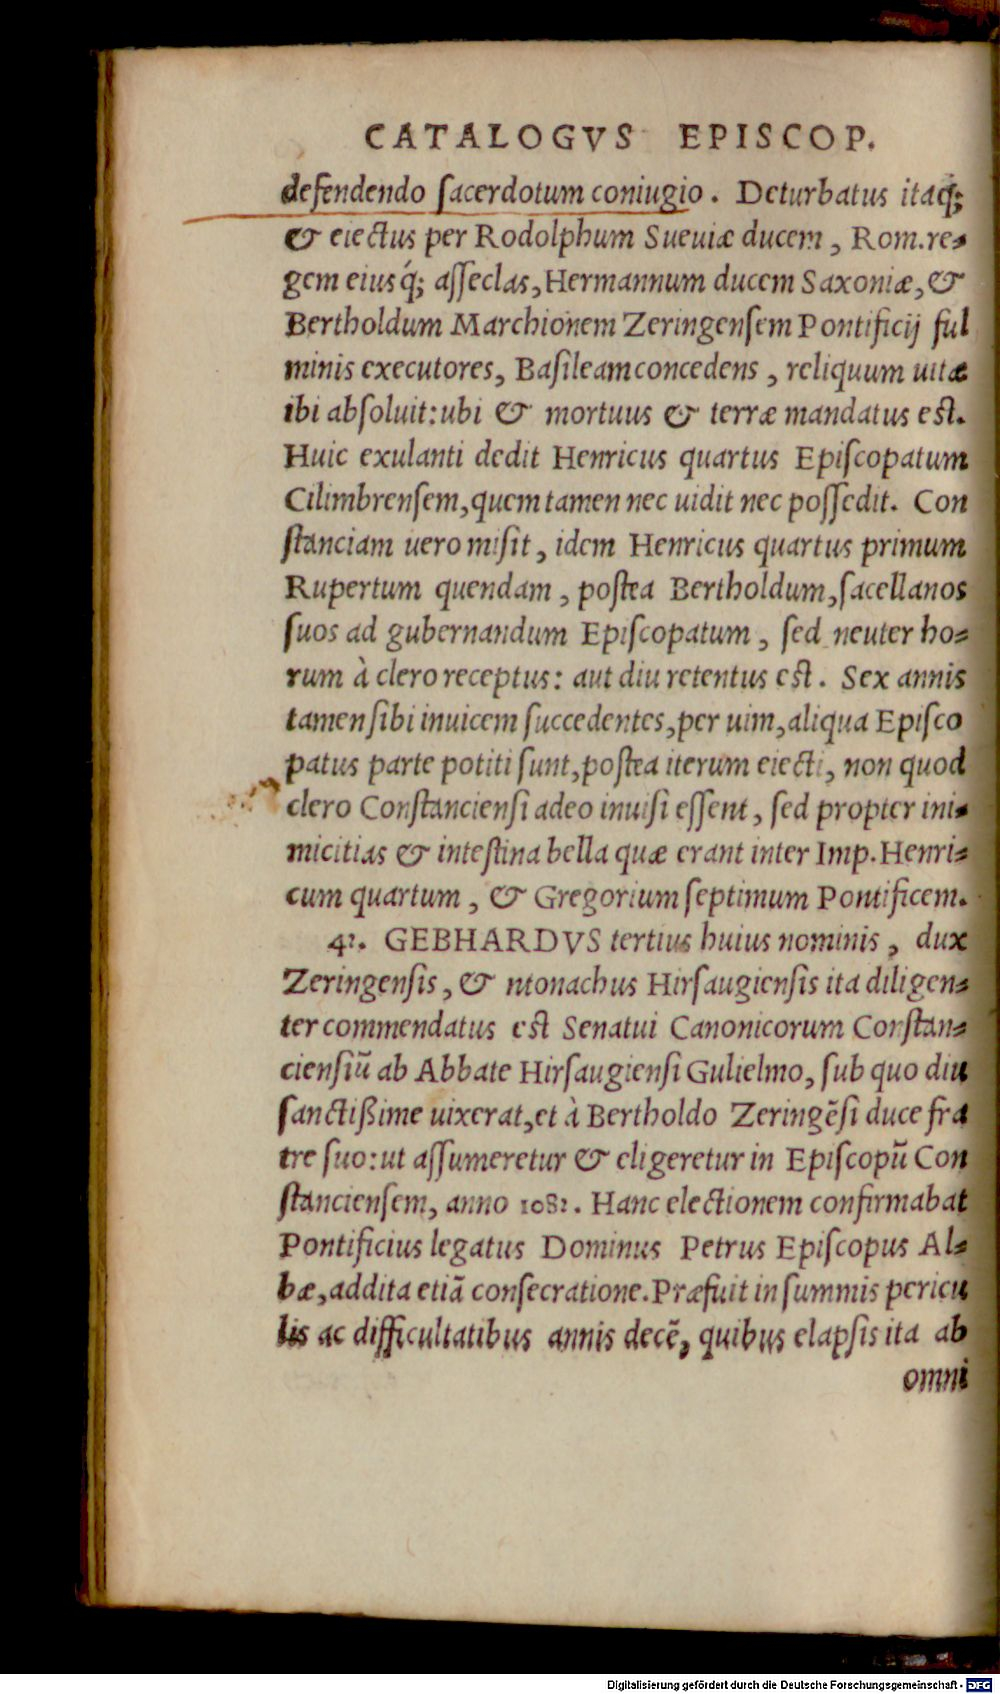 CATALOGVS EPISCOP.
defendendo ſacerdotum coniugio. Deturbatus itaq́;
& eiectus per Rodolphum Sueuiæ ducem, Rom.re-
gem eiusq́; aſſeclas, Hermannum ducem Saxoniæ, &
Bertholdum Marchionem Zeringenſem Pontificij ful
minis executores, Baſileam concedens, reliquum uitæ
ibi abſoluit: ubi & mortuus & terræ mandatus eſt.
Huic exulanti dedit Henricus quartus Epiſcopatum
Cilimbrenſem, quem tamen nec uidit nec poſſedit. Con
ſtanciam uero miſit, idem Henricus quartus primum
Rupertum quendam, poſtea Bertholdum, ſacellanos
ſuos ad gubernandum Epiſcopatum, ſed neuter ho-
rum à clero receptus: aut diu retentus eſt. Sex annis
tamen ſibi inuicem ſuccedentes, per uim, aliqua Epiſco
patus parte potiti ſunt, poſtea iterum eiecti, non quod
clero Conſtancienſi adeo inuiſi eſſent, ſed propter ini-
micitias & inteſtina bella quæ erant inter Imp. Henri-
cum quartum, & Gregorium ſeptimum Pontificem.
42. GEBHARDVS tertius huius nominis, dux
Zeringenſis, & ntonachus Hirſaugienſis ita diligen-
ter commendatus eſt Senatui Canonicorum Conſtan-
cienſiũ ab Abbate Hirſaugienſi Gulielmo, ſub quo diu
ſanctißime uixerat, et à Bertholdo Zeringẽſi duce fra
tre ſuo: ut aſſumeretur & eligeretur in Epiſcopũ Con
ſtancienſem, anno 1082. Hanc electionem confirmabat
Pontificius legatus Dominus Petrus Epiſcopus Al-
bæ, addita etiã conſecratione. Præfuit in ſummis pericu
lis ac difficultatibus annis decẽ, quibus elapſis ita ab
omni
Digitalisierung gefördert durch die Deutsche Forschungsgemeinschaft - DFG